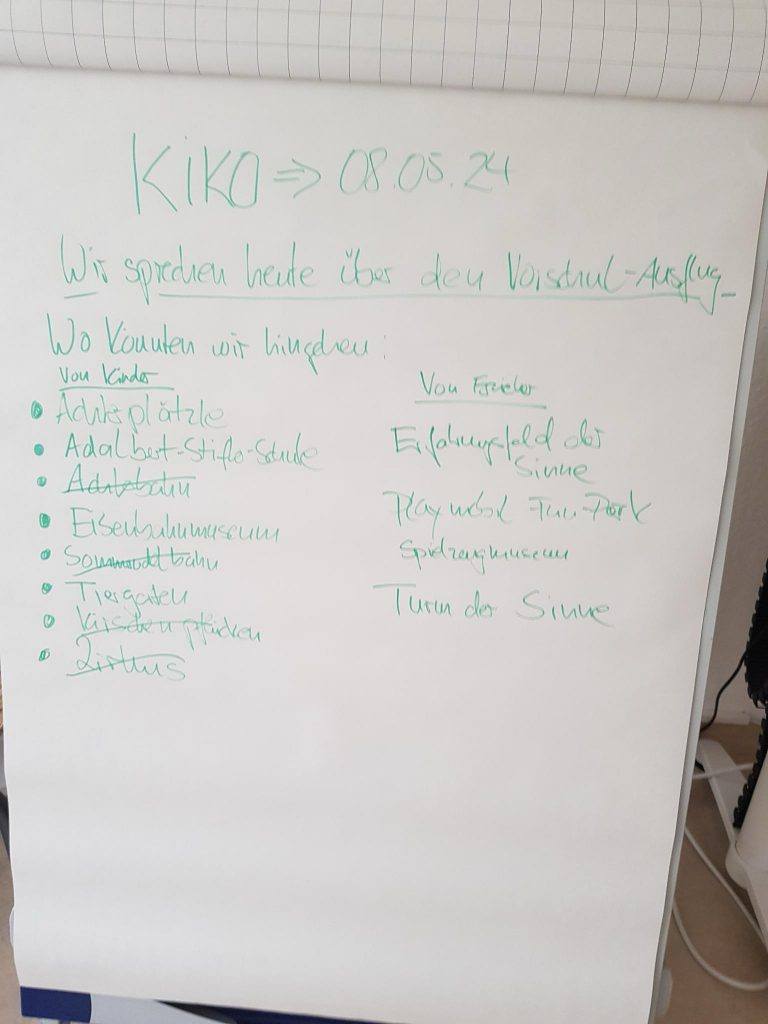 KiKO ⇒ 08.05.24
Wir sprechen heute über den Vorschul-Ausflug
Wo könnten wir hingehen:
Von Kinder
• Adlerplätzle
• Adalbert-Stifter-Schule
• Adlerbahn
• Eisenbahnmuseum
•
• Tiergarten
• Kirschen pflücken
• Zirkus
Von Erzieher
Erfahrungsfeld der
Sinne
Playmobil-Fun-Park
Spielzeugmuseum
Turm der Sinne